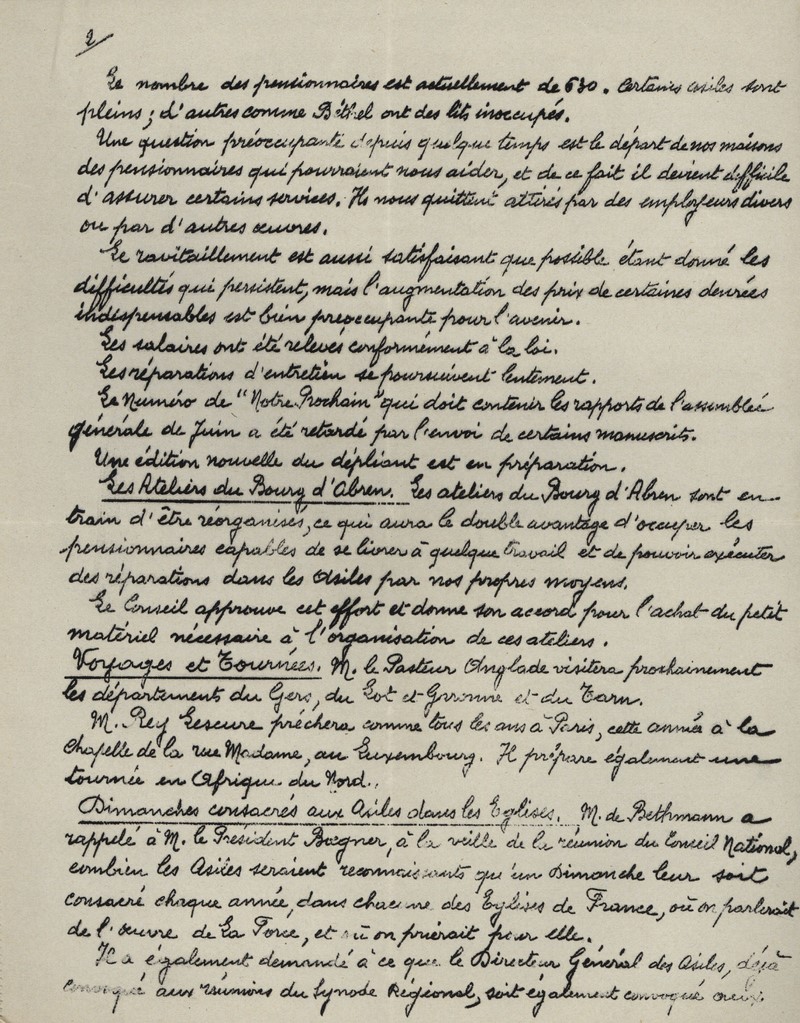 2/
Le nombre des pensionnaires est actuellement de 630. Certains asiles sont
pleins; d'autres comme Béthel ont des lits inoccupés.
Une question préoccupante depuis quelque temps est le départ de nos maisons
des pensionnaires qui pourraient nous aider, et de ce fait il devient difficile
d'assurer certains services. Ils nous quittent attirés par des employeurs divers
ou par d'autres œuvres.
Le ravitaillement est aussi satisfaisant que possible étant donné les
difficultés qui persistent, mais l'augmentation des prix de certaines denrées
indispensables est bien préoccupante pour l'avenir.
Les salaires ont été relevés conformément à la loi.
Les réparations d'entretien se poursuivent lentement.
Le Numéro de "Notre Prochain" qui doit contenir les rapports de l'assemblée
générale de Juin a été retardé par l'envoi de certains manuscrits.
Une édition nouvelle du dépliant est en préparation.
Les Ateliers du Bourg d'Abren. Les ateliers du Bourg d'Abren sont en
train d'être réorganisés, ce qui aura le double avantage d'occuper les
pensionnaires capables de se livrer à quelque travail et de pouvoir exécuter
des réparations dans les Asiles par nos propres moyens.
Le Conseil approuve cet effort et donne son accord pour l'achat du petit
matériel nécessaire à l'organisation de ces ateliers.
Voyages et Tournées. M. le Pasteur Anglade visitera prochainement
les département du Gers, du Lot et Garonne et du Tarn.
M. Rey Lescure prêchera comme tous les ans à Paris, cette année à la
Chapelle de la rue Madame, au Luxembourg. Il prépare également une
tournée en Afrique du Nord.
Dimanches consacrés aux Asiles dans les Eglises. M. de Bethmann a
rappelé à M. le Président Boegner, à la veille de la réunion du Conseil National,
combien les Asiles seraient reconnaissants qu'un Dimanche leur soit
consacré chaque année, dans chacune des Eglises de France, où on parlerait
de l'œuvre de La Force, et où on prierait pour elle.
Il a également demandé à ce que le Directeur Général des Asiles, déjà
convoqué aux réunions du Synode Régional, soit également convoqué aux